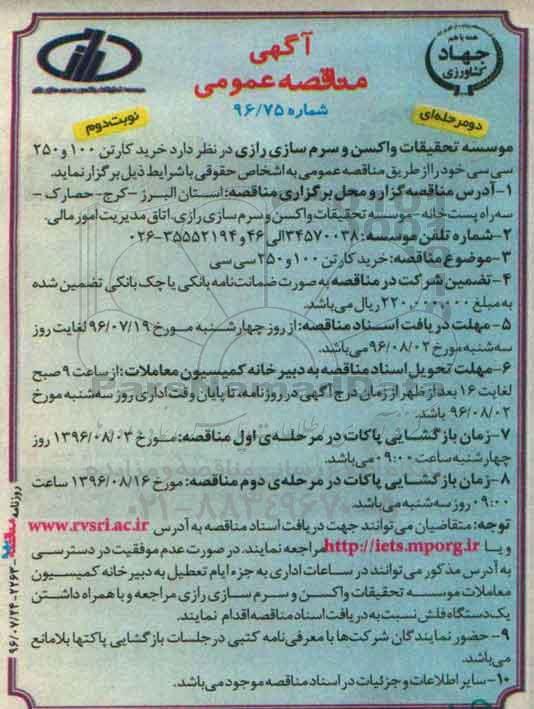 همه با هم
جهاد
کشاورزی
آگهی
مناقصه عمومی
شماره ۹۶/۷۵
دومرحله‌ای
نوبت دوم
موسسه تحقیقات واکسن و سرم سازی رازی در نظر دارد خرید کارتن ۱۰۰ و ۲۵۰
سی سی خود را از طریق مناقصه عمومی به اشخاص حقوقی با شرایط ذیل برگزار نماید.
۱- آدرس مناقصه گزار و محل برگزاری مناقصه: استان البرز - کرج - حصارک -
سه راه پست خانه - موسسه تحقیقات واکسن و سرم سازی رازی. اتاق مدیریت امور مالی.
۲- شماره تلفن موسسه: ۳۴۵۷۰۰۳۸ الی ۴۶ و ۳۵۵۵۲۱۹۴-۰۲۶
۳- موضوع مناقصه: خرید کارتن ۱۰۰ و ۲۵۰ سی سی
۴- تضمین شرکت در مناقصه به صورت ضمانت‌نامه بانکی یا چک بانکی تضمین شده
به مبلغ ۲۲۰,۰۰۰,۰۰۰ ریال می‌باشد.
۵- مهلت دریافت اسناد مناقصه: از روز چهارشنبه مورخ ۹۶/۰۷/۱۹ لغایت روز
سه‌شنبه مورخ ۹۶/۰۸/۰۲ می‌باشد.
۶- مهلت تحویل اسناد مناقصه به دبیرخانه کمیسیون معاملات: از ساعت ۹ صبح
لغایت ۱۶ بعد از ظهر از زمان درج آگهی در روزنامه، تا پایان وقت اداری روز سه‌شنبه مورخ
۹۶/۰۸/۰۲ باشد.
۷- زمان بازگشایی پاکات در مرحله‌ی اول مناقصه: مورخ ۱۳۹۶/۰۸/۰۳ روز
چهارشنبه ساعت ۰۹:۰۰ می‌باشد.
۸- زمان بازگشایی پاکات در مرحله‌ی دوم مناقصه: مورخ ۱۳۹۶/۰۸/۱۶ ساعت
۰۹:۰۰ روز سه شنبه می‌باشد.
توجه: متقاضیان می‌توانند جهت دریافت اسناد مناقصه به آدرس www.rvsri.ac.ir
و یا http://iets.mporg.ir مراجعه نمایند. در صورت عدم موفقیت در دسترسی
به آدرس مذکور می‌توانند در ساعات اداری به جز ایام تعطیل به دبیرخانه کمیسیون
معاملات موسسه تحقیقات واکسن و سرم سازی رازی مراجعه و با همراه داشتن
یک دستگاه فلش نسبت به دریافت اسناد مناقصه اقدام نمایند.
۹- حضور نمایندگان شرکت‌ها با معرفی‌نامه کتبی در جلسات بازگشایی پاکتها بلامانع
می‌باشد.
۱۰- سایر اطلاعات و جزئیات در اسناد مناقصه موجود می‌باشد.
روزنامه مناقصه - ۲۲۶۳ - ۹۶/۰۷/۲۴
ParsNamadData
۰۲۱-۸۸۳۴۹۶۷۰